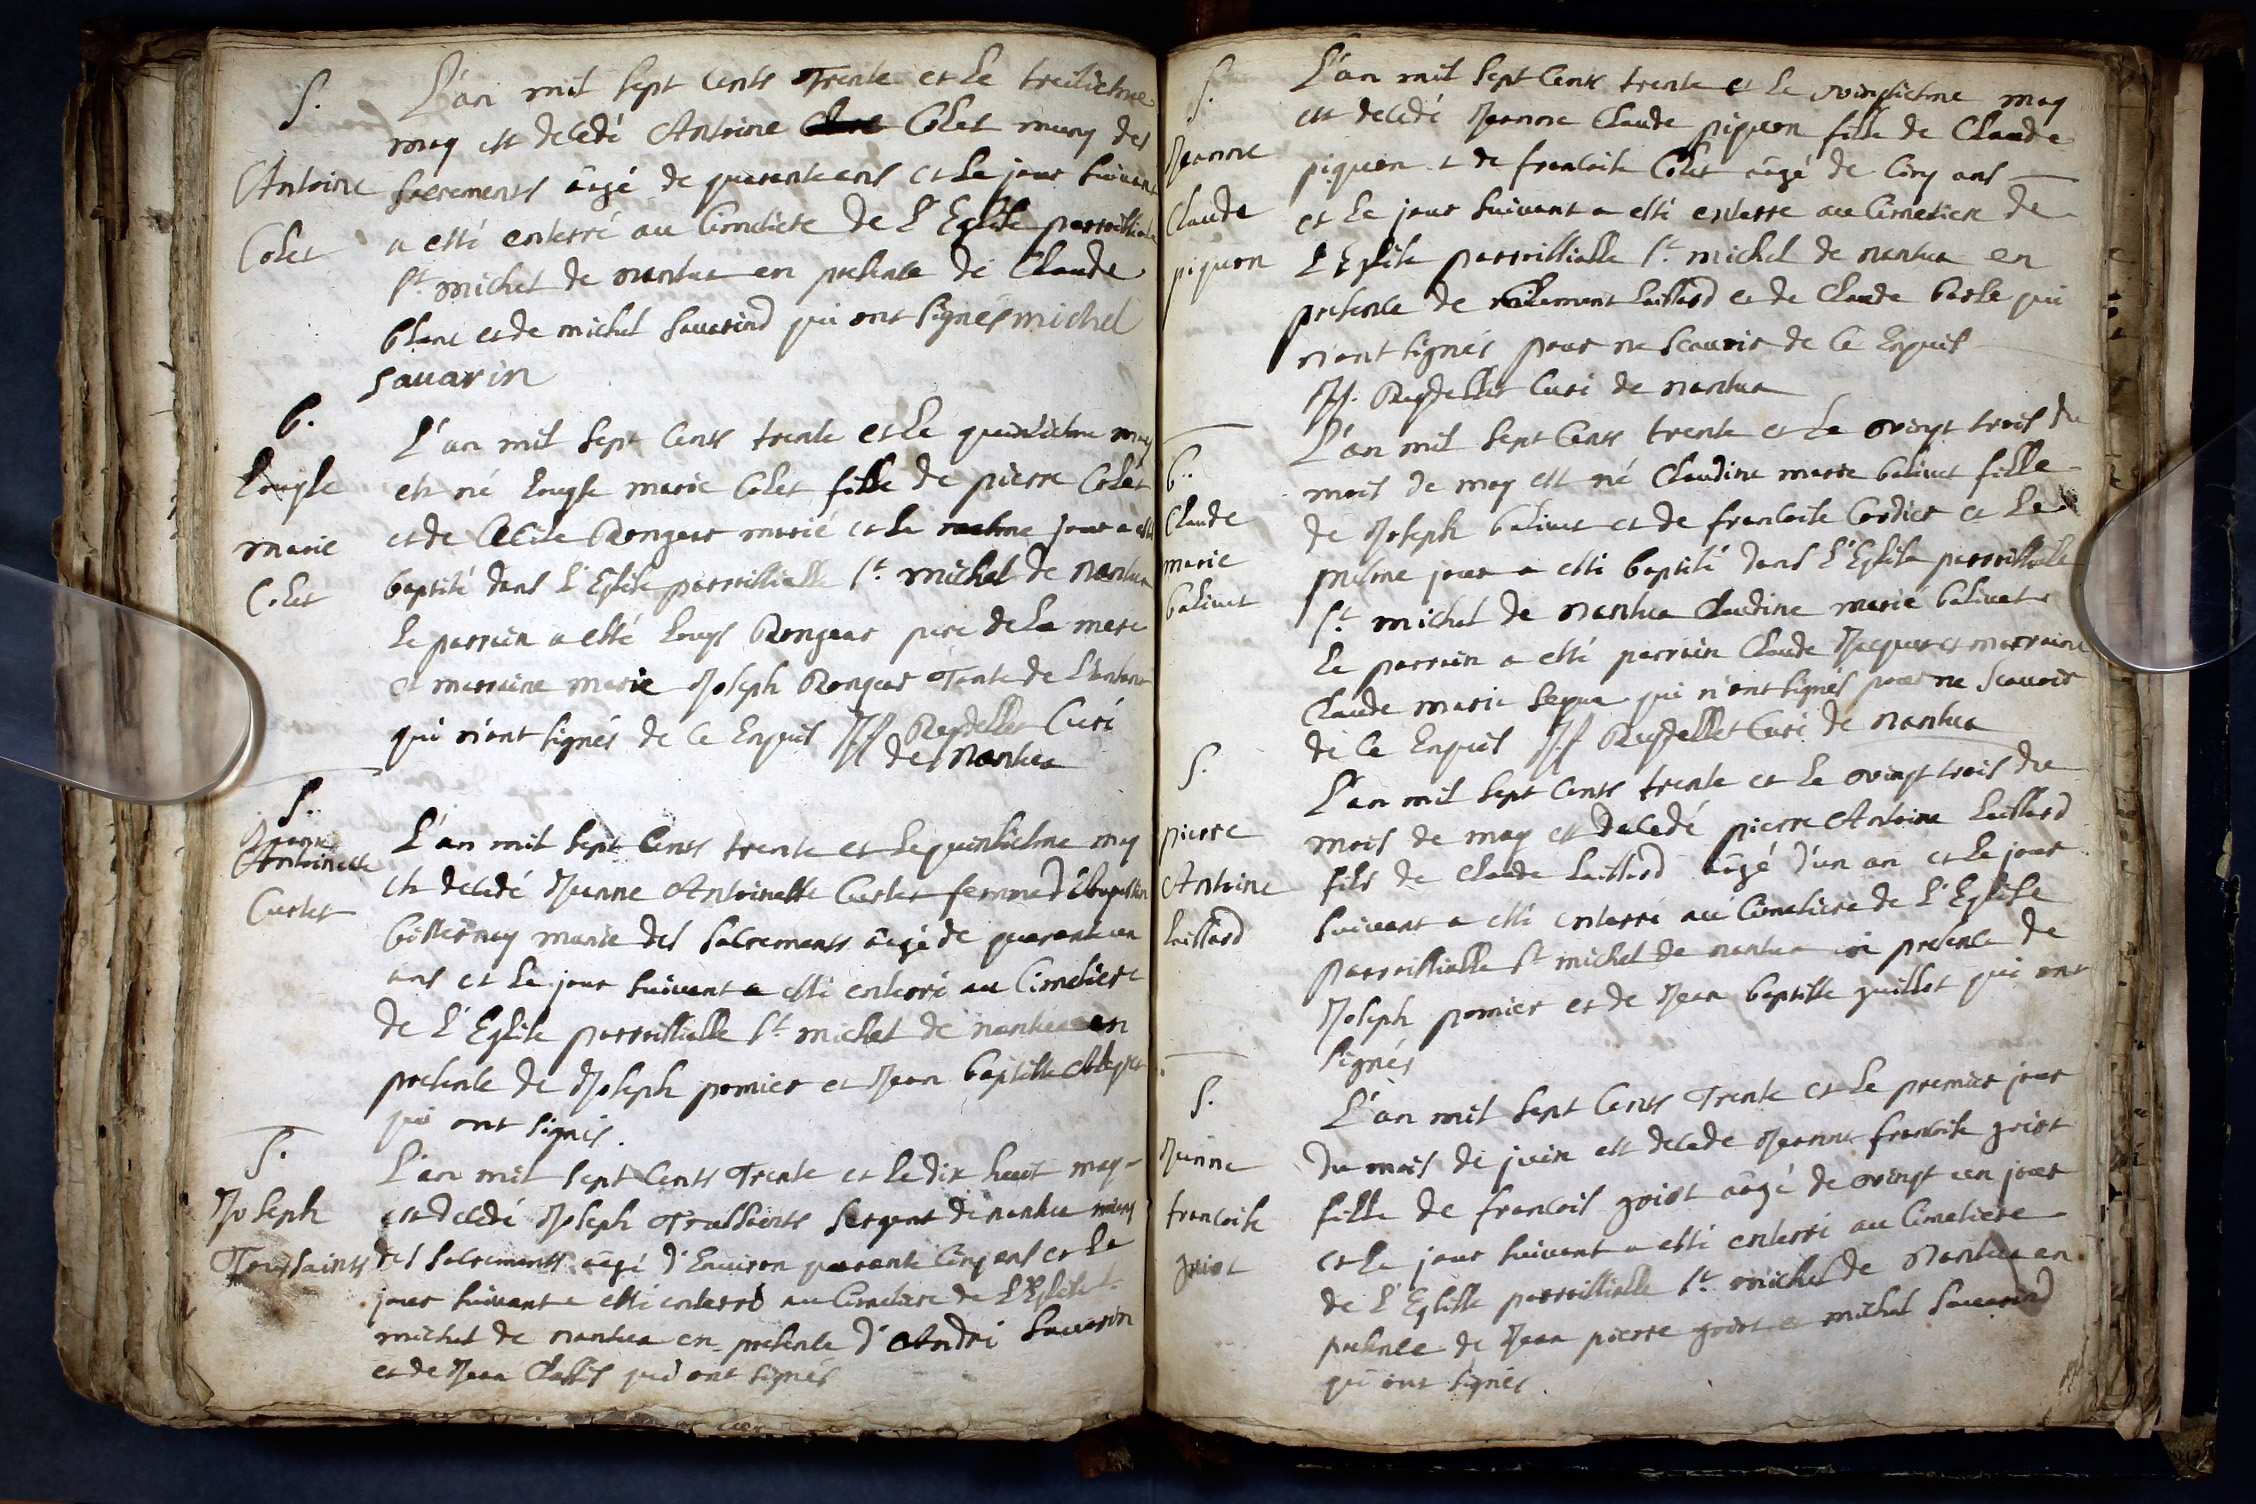 S.
Antoine
Colet
L'an mil sept cents Trente et le treiziême
may est decedé Antoine Colet muny des
sacrements aâgé de quarente ans et le jour suivant
a esté enterré au Cimetiere de l'Eglise parroissialle
St. michel de nantua en presence de Claude
blanc et de michel sauarind qui ont signés michel
sauarin
b.
Louyse
marie
Colet
L'an mil sept cents trente et le quinziême may
est né Louyse marie Colet fille de pierre Colet
et de Cecile Rongear marié et le mesme jour a esté
baptisé dans l'Eglise parroissialle St. michel de Nantua
le parrain a esté Louys Rongear pere de la mere
et marraine marie Joseph Rongear Tante de l'enfant
qui n'ont signés de ce Enquis Jf Reydellet Curé
de Nantua
S.
Jeanne
Antoinette
Curlet
L'an mil sept cents trente et le quinsiême may
est decedé Jeanne Antoinette Curlet femme d'
munie des sacrements aâgé de quarente un
ans et le jour suivant a esté enterré au Cimetiere
de l'Eglise parroissialle St. michel de nantua en
presence de Joseph pomier et Jean baptiste
qui ont signés.
S.
Joseph
Toussaints
L'an mil sept cents Trente et le dix huit may
est decedé Joseph Trussaints sergent de nantua muny
des sacrements aâgé d'Environ quarente cinq ans et le
jour suivant a esté enterré au Cimetiere de l'Eglise St.
michel de nantua en presence d'André Sauarin
et de Jean qui ont signés
S.
Jeanne
Claude
piquon
L'an mil sept cents trente et le vingtiême may
est decedé Jeanne Claude piquon fille de Claude
piquon et de francoise Colet aâgé de cinq ans
et le jour suivant a esté enterre au Cimetiere de
l'Eglise parroissialle St. michel de nantua en
presence de Laissard et de Claude qui
n'ont signés pour ne scauoir de ce Enquis
Jf. Reydellet Curé de nantua
b.
Claude
marie
baliuet
L'an mil sept cents trente et le vingt trois du
mois de may est né Claudine marie baliuet fille
de Joseph baliuet et de francoise Cordier et le
mesme jour a esté baptisé dans l'Eglise parroissialle
St. michel de nantua Claudine marie baliuet
le parrain a esté parrain Claude Jacquet et marraine
Claude marie qui n'ont signés pour ne scauoir
de ce Enquis Jf Reydellet Curé de nantua
S.
pierre
Antoine
Laissard
L'an mil sept cents trente et le vingt trois du
mois de may est decedé pierre Antoine Laissard
fils de Claude Laissard aâgé d'un an et le jour
suivant a esté enterré au Cimetiere de l'Eglise
parroissialle St michel de nantua en presence de
Joseph pomier et de Jean baptiste guillot qui ont
signés
S.
Jeanne
francoise
goiot
L'an mil sept cents Trente et le premier jour
du mois de juin est decede Jeanne francoise goiot
fille de francois goiot aâgé de vingt un jour
et le jour suivant a esté enterré au Cimetiere
de l'Eglisse parroissialle St. michel de Nantua en
presence de Jean pierre goiot et michel sauarind
qui ont signés.